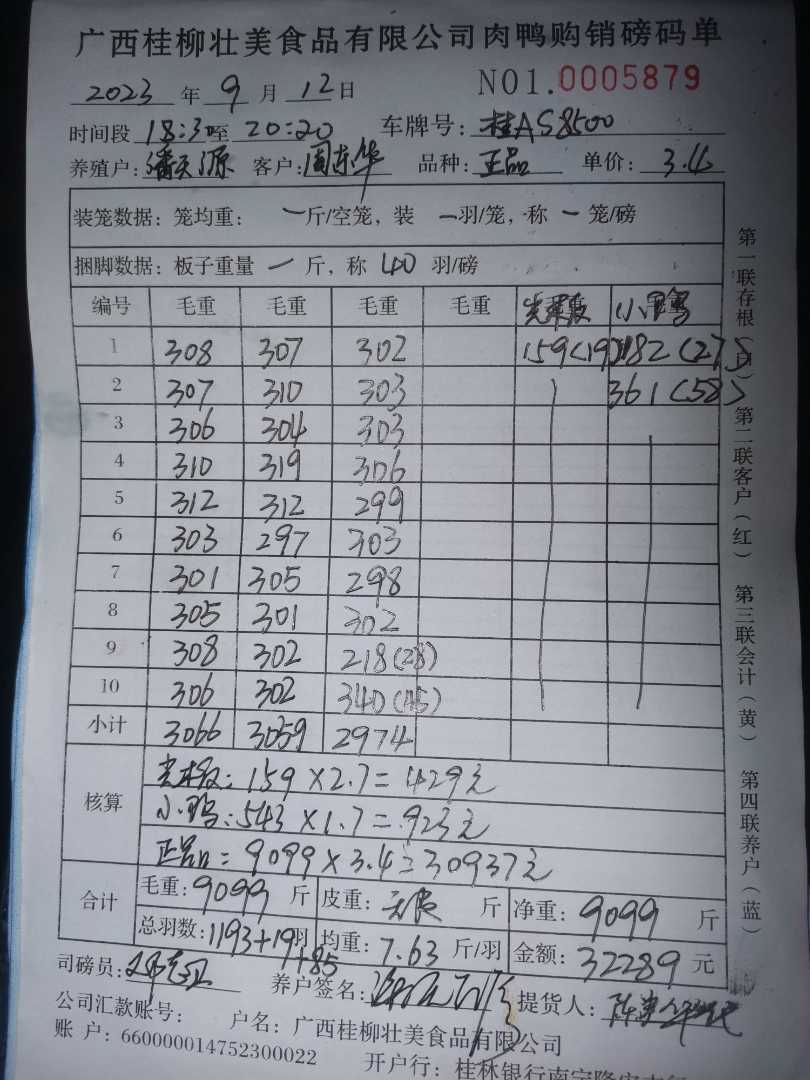 广西桂柳壮美食品有限公司肉鸭购销磅码单
2023 年 9 月 12 日 NO1.0005879
时间段 18:30 至 20:20 车牌号: 桂AS8500
养殖户: 潘天源 客户: 周东华 品种: 正品 单价: 3.4
装笼数据: 笼均重: 一 斤/空笼, 装 一 羽/笼, 称 一 笼/磅
捆脚数据: 板子重量 一 斤, 称 40 羽/磅
编号 毛重 毛重 毛重 毛重 小鸭
1 308 307 302 159(19) 182(27)
2 307 310 303 361(58)
3 306 304 303
4 310 319 306
5 312 312 299
6 303 297 303
7 301 305 298
8 305 301 302
9 308 302 218(28)
10 306 302 340(45)
小计 3066 3059 2974
核算
159×2.7=429元
小鸭:543×1.7=923元
正品:9099×3.4=30937元
合计
毛重: 9099 斤 皮重: 斤 净重: 9099 斤
总羽数: 1193+19+85 羽 均重: 7.63 斤/羽 金额: 32289 元
司磅员: 养户签名: 提货人:
公司汇款账号: 户名: 广西桂柳壮美食品有限公司
账 户: 660000014752300022 开户行: 桂林银行南宁隆安
第一联存根(白) 第二联客户(红) 第三联会计(黄) 第四联养户(蓝)